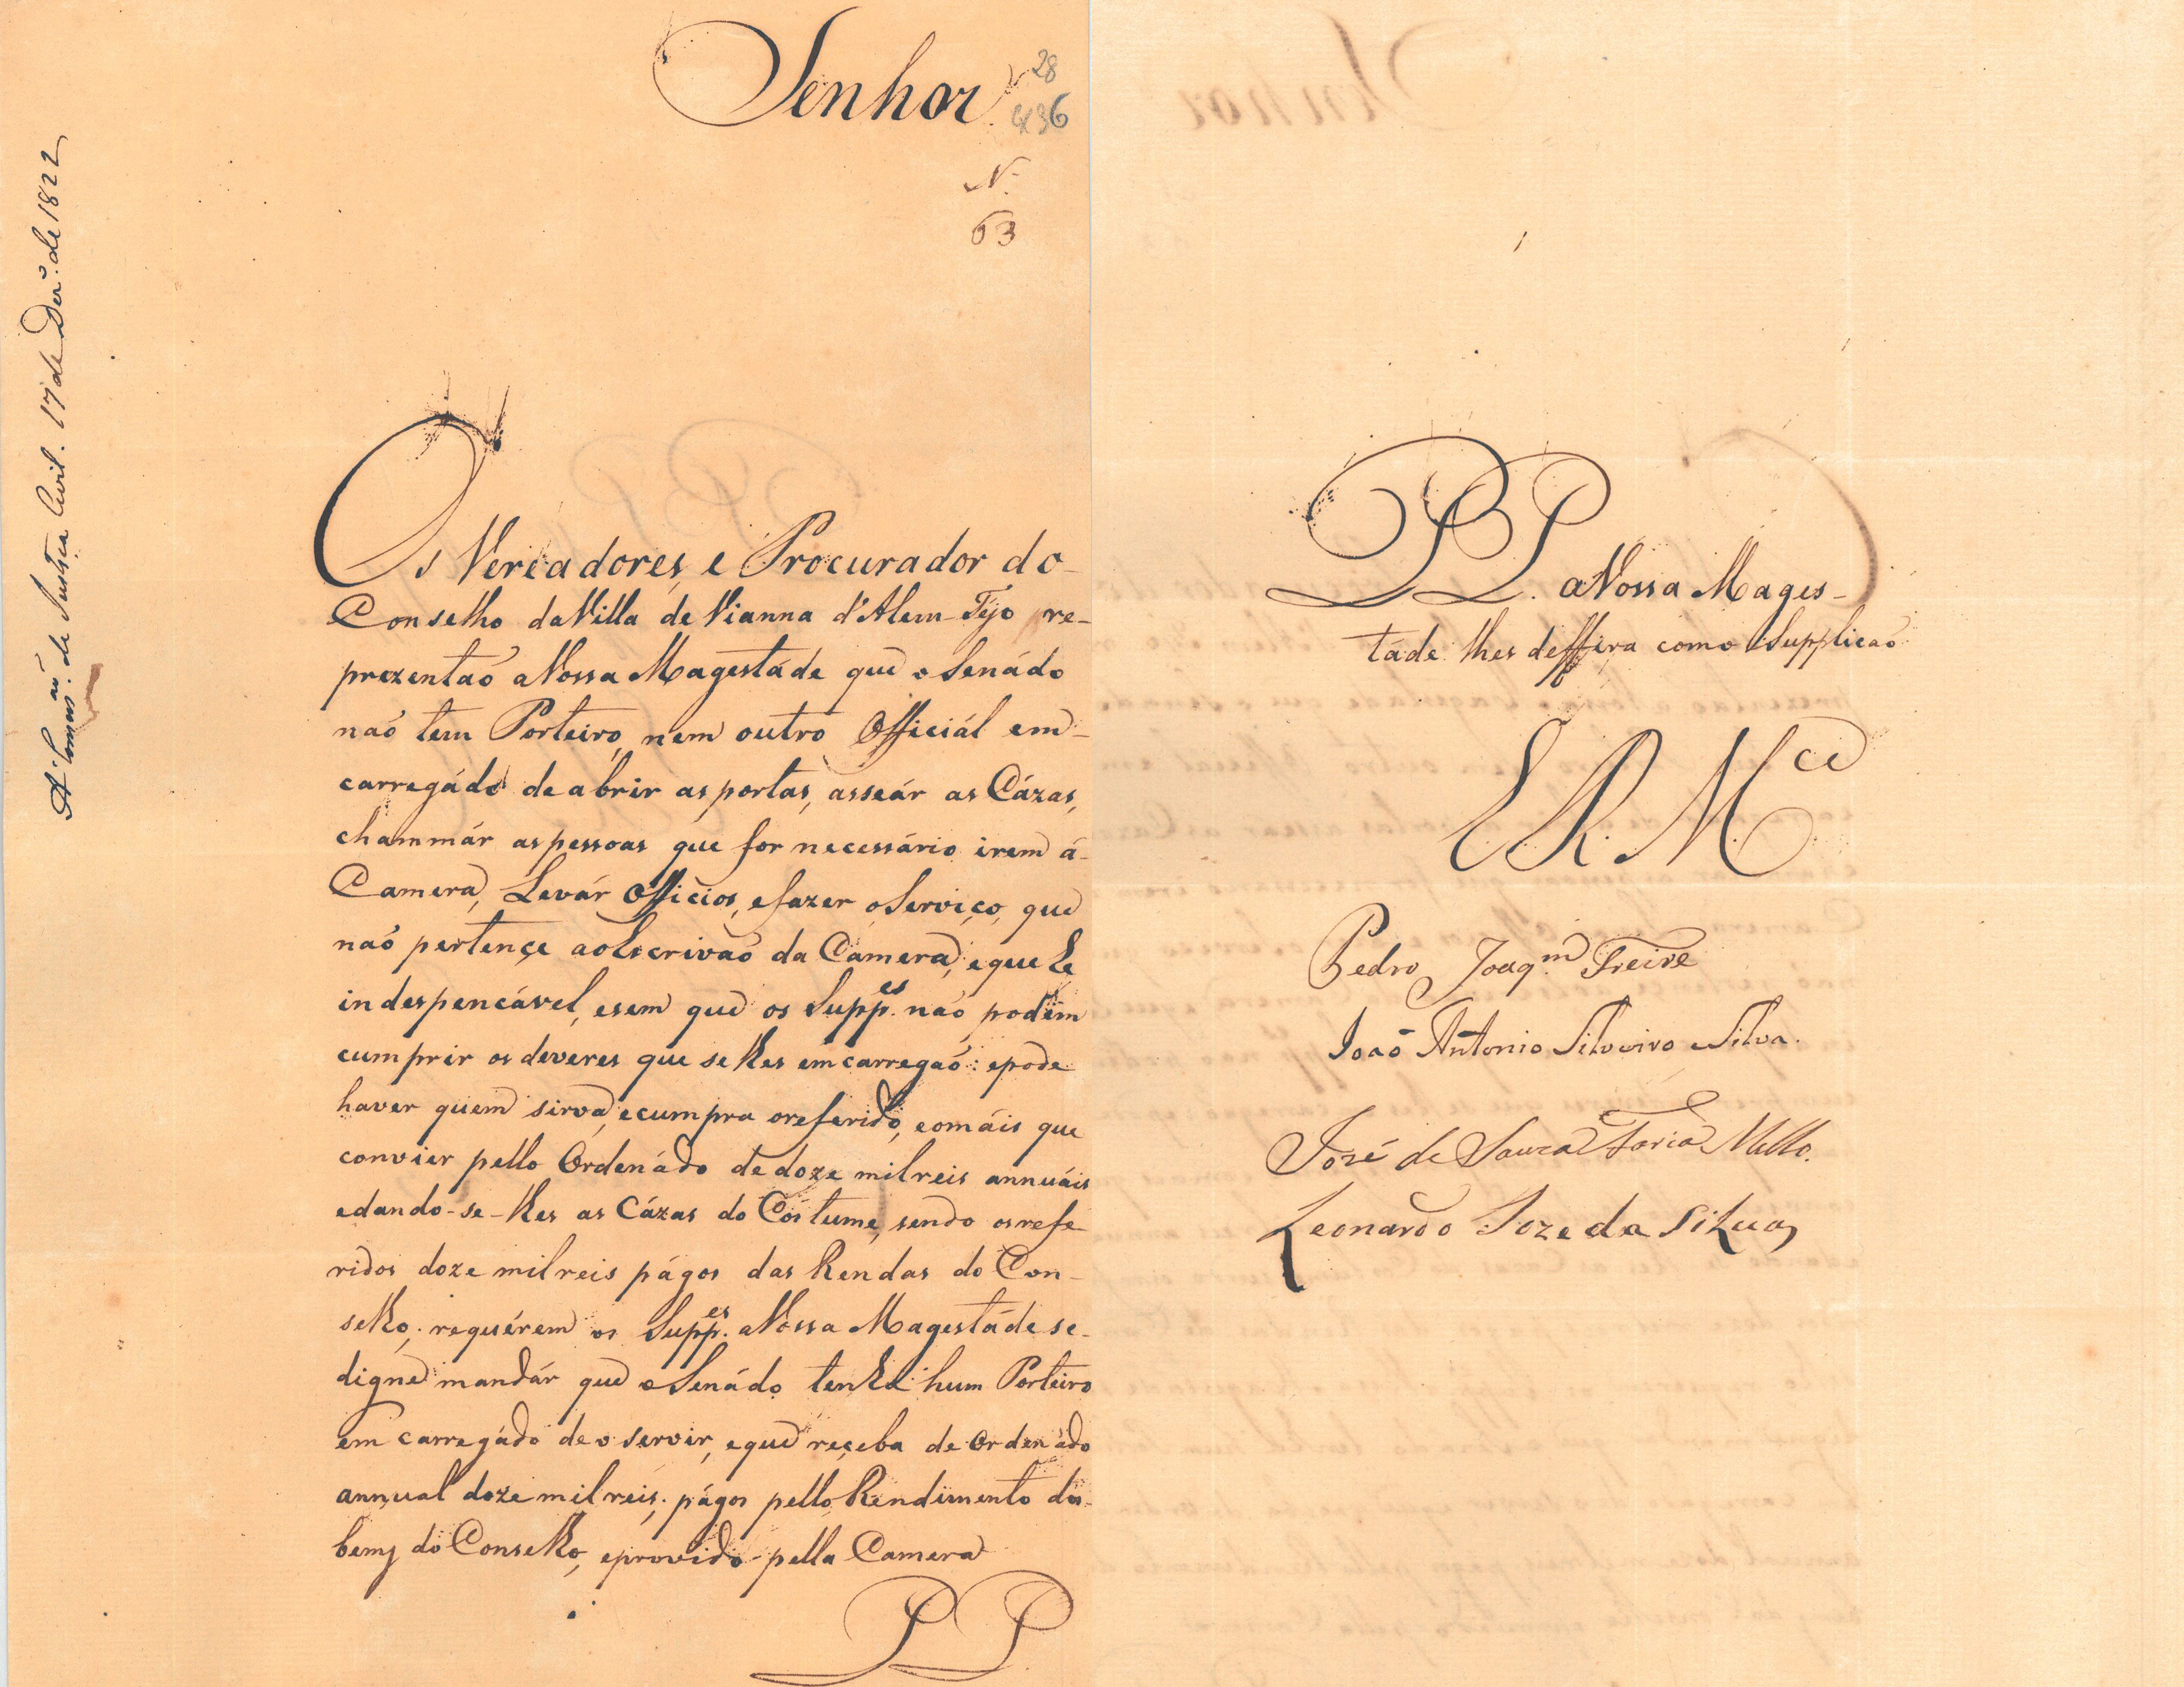 Senhor
28
436
N.
63
A' Comm.ão de Justiça Civil. 17 de Dez.º de 1822
Os Vereadores, e Procurador do
Conselho da Villa de Vianna d'Alem-Tejo re-
prezentaõ a Vossa Magestáde que o Senádo
naõ tem Porteiro, nem outro Officiál em-
carregádo de abrir as portas, asseár as Cázas,
chammár as pessoas que for necessário irem á
Camera, Levár Officios, e fazer o Serviço, que
naõ pertençe ao Escrivaõ da Camera, e que he
indespencável, e sem que os Supp.es naõ podem
cumprir os deveres que se lhes emcarregaõ: e pode
haver quem sirva, e cumpra o referido, e o máis que
convier pello Ordenádo de doze mil reis annuáis
e dando-se-lhes as Cázas do Cóstume, sendo os refe
ridos doze mil reis págos das Rendas do Con-
selho; requérem os Supp.es a Vossa Magestáde se-
digne mandár que o Senádo tenha hum Porteiro
emcarregádo de o servir, e que reçeba de Ordenádo
annual doze mil reis, págos pello Rendimento dos
bens do Conselho, e provido pella Camera
PP
PP. a Vossa Mages-
táde lhes deffira como Supplicaõ
E R. M.ce
Pedro Joaq.m Freire
Joaõ Antonio Silveiro e Silva.
José de Souza Faria Mello.
Leonardo Joze da Silua